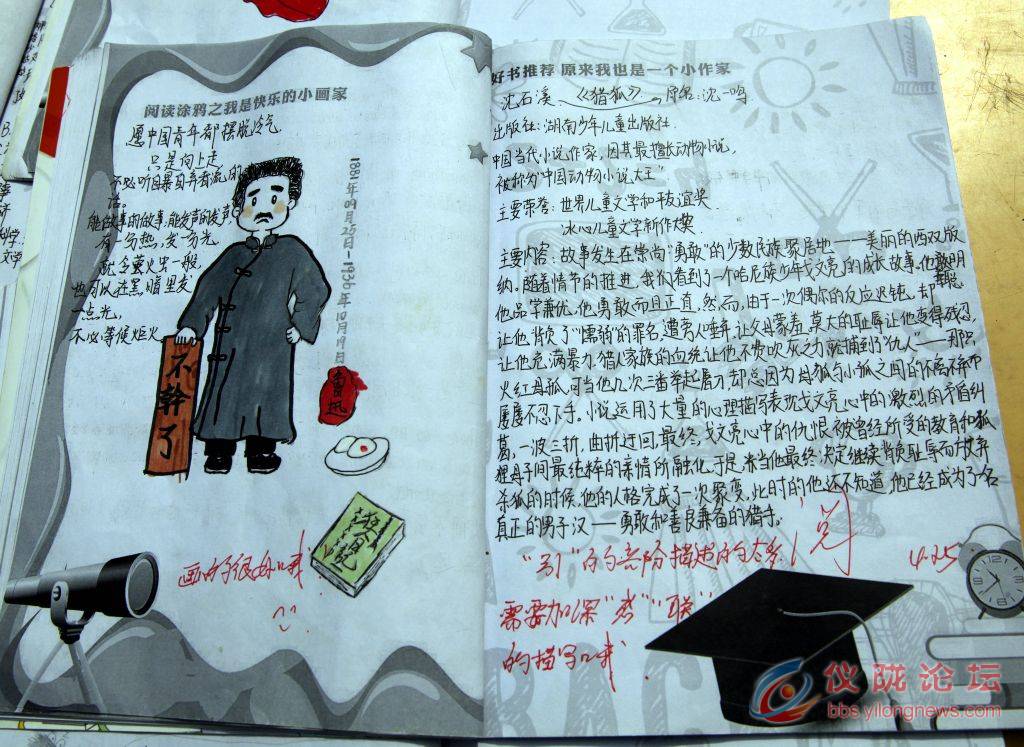 阅读涂鸦之我是快乐的小画家
愿中国青年都摆脱冷气
只是向上走
不必听自暴自弃者流的
话。
能做事的做事,能发声的发声
有一分热,发一分光
就令萤火虫一般,
也可以在黑暗里发
一点光,
不必等候炬火
1881年09月25日-1936年10月19日
不幹了
鲁迅
画的很好哦!
好书推荐 原来我也是一个小作家
沈石溪 《猎狐》 原名:沈一鸣
出版社:湖南少年儿童出版社.
中国当代小说作家,因其最擅长动物小说,
被称为"中国动物小说大王"
主要荣誉:世界儿童文学和平友谊奖
冰心儿童文学新作奖
主要内容:故事发生在崇尚"勇敢"的少数民族聚居地——美丽的西双版
纳.随着情节的推进,我们看到了一个哈尼族少年戈文亮的成长故事.他聪明
他品学兼优,他勇敢而且正直.然而,由于一次偶尔的反应迟钝,却
让他背负了"懦弱"的罪名.遭旁人唾弃,让父母蒙羞,莫大的耻辱让他变得残忍,
让他充满暴力.猎人家族的血统让他不费吹灰之力就捕到了"仇人"——那只
火红母狐,可当他几次三番举起屠刀,却总因为母狐与小狐之间的不离不弃而
屡屡不忍下手.小说运用了大量的心理描写表现戈文亮心中的激烈的矛盾纠
葛,一波三折,曲折迂回,最终,戈文亮心中的仇恨被曾经所受的教育和狐
狸母子间最纯粹的亲情所融化,于是,当他最终决定继续背负耻辱而放弃
杀狐的时候,他的人格完成了一次聚变,此时的他还不知道,他已经成为了名
真正的男子汉——勇敢和善良兼备的猎手。
4.25
需要加深
的描写哦.
仪陇论坛
bbs.yilongnews.com